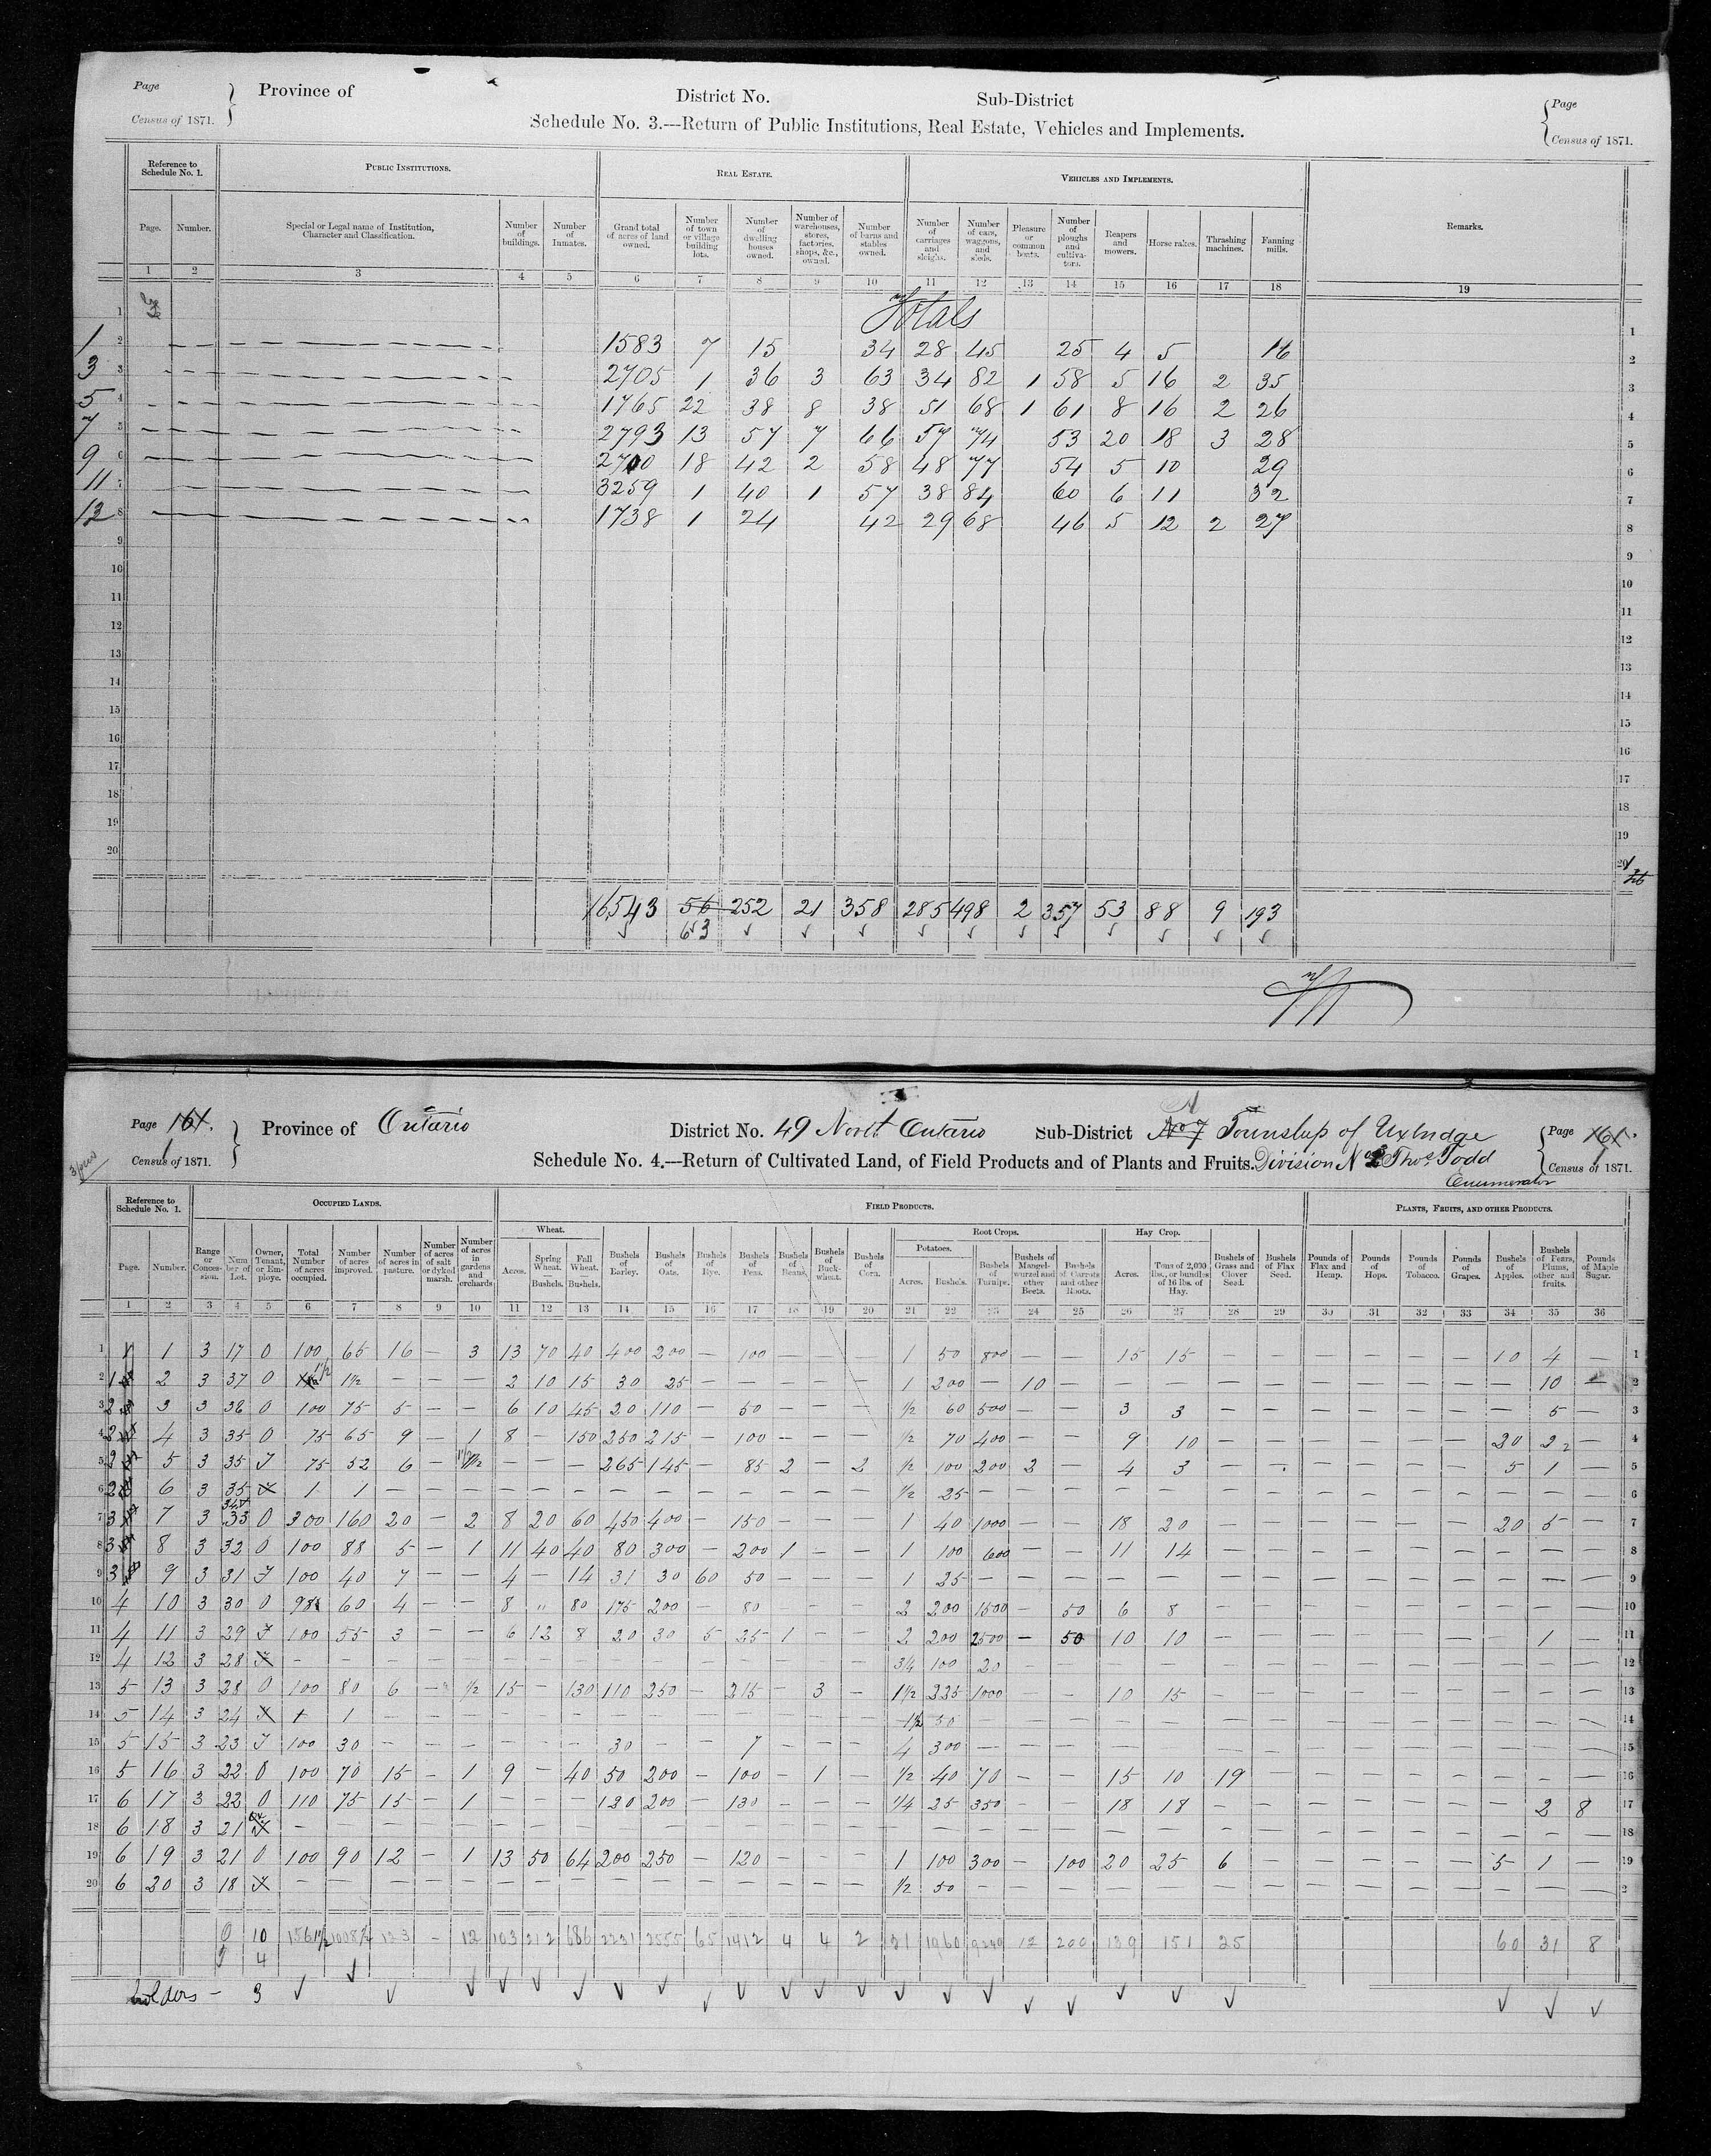 Page
Census of 1871.
Province of
District No.
Sub-District
Page
Census of 1871.
Schedule No. 3.—Return of Public Institutions, Real Estate, Vehicles and Implements.
Reference to Schedule No. 1.
Public Institutions.
Real Estate.
Vehicles and Implements.
Remarks.
Page. Number. Special or Legal name of Institution, Character and Classification. Number of buildings. Number of Inmates. Grand total of acres of land owned. Number of town or village building lots. Number of dwelling houses owned. Number of warehouses, stores, factories, shops, &c., owned. Number of barns and stables owned. Number of carriages and sleighs. Number of cars, waggons, and sleds. Pleasure or common boats. Number of ploughs and cultivators. Reapers and mowers. Horse rakes. Thrashing machines. Fanning mills.
1 2 3 4 5 6 7 8 9 10 11 12 13 14 15 16 17 18 19
1 Totals 1
1 2 1583 7 15 34 28 45 25 4 5 16 2
3 3 2705 1 36 3 63 34 82 1 58 5 16 2 35 3
5 4 1765 22 38 8 38 51 68 1 61 8 16 2 26 4
7 5 2793 13 57 7 66 57 74 53 20 18 3 28 5
9 6 2700 18 42 2 58 48 77 54 5 10 29 6
11 7 3259 1 40 1 57 38 84 60 6 11 32 7
13 8 1738 1 24 42 29 68 46 5 12 2 27 8
9 9
10 10
11 11
12 12
13 13
14 14
15 15
16 16
17 17
18 18
19 19
20 20
16,543 56 252 21 358 285 498 2 357 53 88 9 193
63
Page 161.
1
Census of 1871.
Province of Ontario
District No. 49 North Ontario
Sub-District No 7 Township of Uxbridge
Page 161.
Census of 1871.
Schedule No. 4.—Return of Cultivated Land, of Field Products and of Plants and Fruits. Division No 2 Thos Todd
Enumerator
Reference to Schedule No. 1.
Occupied Lands.
Field Products.
Plants, Fruits, and other Products.
Wheat.
Root Crops.
Potatoes.
Hay Crop.
Page. Number. Range or Concession. Number of Lot. Owner, Tenant, or Employe. Total Number of acres occupied. Number of acres improved. Number of acres in pasture. Number of acres of salt or dyked marsh. Number of acres in gardens and orchards Acres. Spring Wheat.—Bushels. Fall Wheat.—Bushels. Bushels of Barley. Bushels of Oats. Bushels of Rye. Bushels of Peas. Bushels of Beans. Bushels of Buckwheat. Bushels of Corn. Acres. Bushels. Bushels of Turnips. Bushels of Mangel-wurzel and other Beets. Bushels of Carrots and other Roots. Acres. Tons of 2,000 lbs., or bundles of 16 lbs. of Hay. Bushels of Grass and Clover Seed. Bushels of Flax Seed. Pounds of Flax and Hemp. Pounds of Hops. Pounds of Tobacco. Pounds of Grapes. Bushels of Apples. Bushels of Pears, Plums, other and fruits. Pounds of Maple Sugar.
1 2 3 4 5 6 7 8 9 10 11 12 13 14 15 16 17 18 19 20 21 22 23 24 25 26 27 28 29 30 31 32 33 34 35 36
1 1 1 3 17 O 100 65 16 — 3 13 70 40 400 200 — 100 — — — 1 50 800 — — 15 15 — — — — — — 10 4 — 1
2 1 2 3 37 O 1½ 1½ — — — 2 10 15 30 25 — — — — — 1 200 — 10 — — — — — — — — — — 10 — 2
3 2 3 3 36 O 100 75 5 — — 6 10 45 20 110 — 50 — — — ½ 60 500 — — 3 3 — — — — — — — 5 — 3
4 2 4 3 35 O 75 65 9 — 1 8 — 150 250 215 — 100 — — — ½ 70 400 — — 9 10 — — — — — — 20 4
5 2 5 3 35 T 75 52 6 — 1½ — — — 265 145 — 85 2 — 2 ½ 100 200 2 — 4 3 — — — — — — 5 1 — 5
6 2 6 3 35 1 1 — — — — — — — — — — — — — ½ 25 — — — — — — — — — — — — — — 6
7 3 7 3 33 O 300 160 20 — 2 8 20 60 450 400 — 150 — — — 1 40 1000 — — 18 20 — — — — — — 20 5 — 7
8 3 8 3 32 O 100 88 5 — 1 11 40 40 80 300 — 200 1 — — 1 100 600 — — 11 14 — — — — — — — — — 8
9 3 9 3 31 T 100 40 7 — — 4 — 14 31 30 60 50 — — — 1 25 — — — — — — — — — — — — — — 9
10 4 10 3 30 O 98 60 4 — — 8 " 80 175 200 — 80 — — — 2 200 1500 — 50 6 8 — — — — — — — — — 10
11 4 11 3 29 T 100 55 3 — — 6 12 8 20 30 5 25 1 — — 2 200 2500 — 50 10 10 — — — — — — — 1 — 11
12 4 12 3 28 — — — — — — — — — — — — — — — ¾ 100 20 — — — — — — — — — — — — — 12
13 5 13 3 28 O 100 80 6 — ½ 15 — 130 110 250 — 215 — 3 — 1½ 225 1000 — — 10 15 — — — — — — — — — 13
14 5 14 3 24 1 1 — — — — — — — — — — — — — 1½ 50 — — — — — — — — — — — — — — 14
15 5 15 3 23 T 100 30 — — — — — — 30 — 7 — — — 4 300 — — — — — — — — — — — — — — 15
16 5 16 3 22 O 100 70 15 — 1 9 — 40 50 200 — 100 — 1 — ½ 40 70 — — 15 10 19 — — — — — — — — 16
17 6 17 3 22 O 110 75 15 — 1 — — — 120 200 — 130 — — — ¼ 25 350 — — 18 18 — — — — — — — 2 8 17
18 6 18 3 21 — — — — — — — — — — — — — — — — — — — — — — — — — — — — — — — 18
19 6 19 3 21 O 100 90 12 — 1 13 50 64 200 250 — 120 — — — 1 100 300 — 100 20 25 6 — — — — — 5 1 — 19
20 6 20 3 18 — — — — — — — — — — — — — — — ½ 50 — — — — — — — — — — — — — — 2
O 10 1561½ 123 — 12 103 212 686 2231 2555 65 1412 4 4 2 21 1960 9240 12 200 139 151 25 60 31 8
T 4
holders — 3